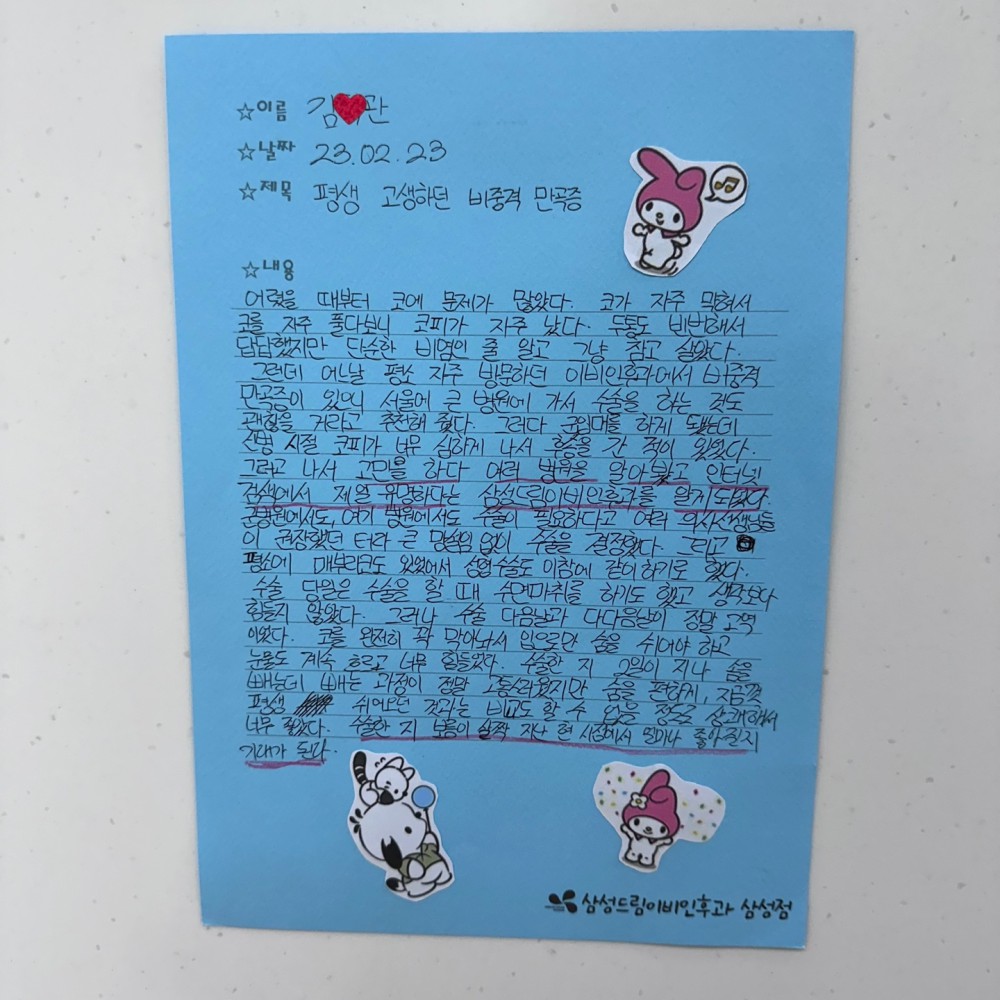 ☆이름 김 관
☆날짜 23.02.23
☆제목 평생 고생하던 비중격 만곡증
☆내용
어렸을 때부터 코에 문제가 많았다. 코가 자주 막혀서
코를 자주 풀다보니 코피가 자주 났다. 두통도 빈번해서
답답했지만 단순한 비염인 줄 알고 그냥 참고 살았다.
그런데 어느날 평소 자주 방문하던 이비인후과에서 비중격
만곡증이 있으니 서울에 큰 병원에 가서 수술을 하는 것도
괜찮을 거라고 추천해 줬다. 그러다 군입대를 하게 됐는데
신병 시절 코피가 너무 심하게 나서 후송을 간 적이 있었다.
그러고 나서 고민을 하다 여러 병원을 알아봤고 인터넷
검색에서 제일 유명하다는 삼성드림이비인후과를 알게되었다.
군병원에서도, 여기 병원에서도 수술이 필요하다고 여러 의사선생님들
이 권장했던 터라 큰 망설임 없이 수술을 결정했다. 그리고
평소에 매부리코도 있었어서 성형수술도 이참에 같이 하기로 했다.
수술 당일은 수술을 할 때 수면마취를 하기도 했고 생각보다
힘들지 않았다. 그러나 수술 다음날과 다다음날이 정말 고역
이었다. 코를 완전히 꽉 막아놔서 입으로만 숨을 쉬어야 하고
눈물도 계속 흐르고 너무 힘들었다. 수술한 지 2일이 지나 솜을
빼는데 빼는 과정이 정말 고통스러웠지만 숨을 편하게, 지금껏
평생 쉬어오던 것과는 비교도 할 수 없을 정도로 상쾌해서
너무 좋았다. 수술한 지 보름이 살짝 지난 현 시점에서 얼마나 좋아질지
기대가 된다.
삼성드림이비인후과 삼성점